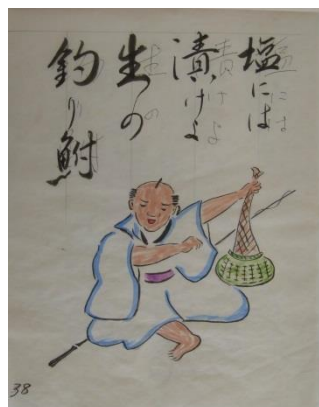 塩には
漬けよ
生の
釣り鮒
38